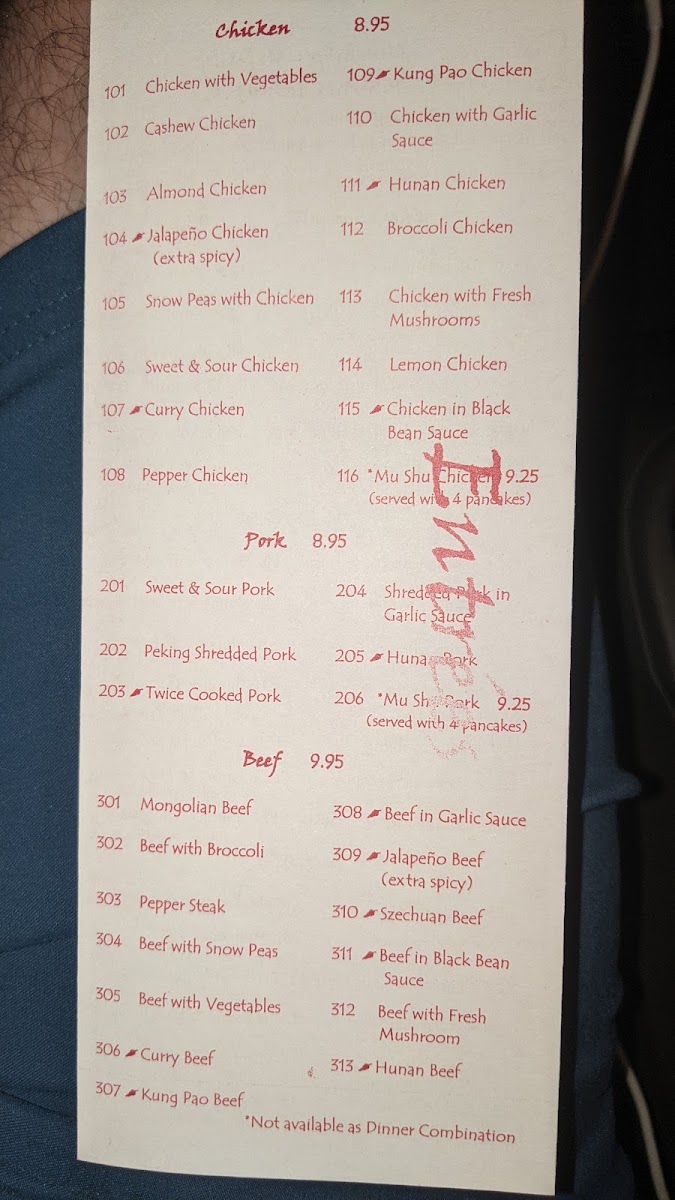 Chicken 8.95
101 Chicken with Vegetables
102 Cashew Chicken
103 Almond Chicken
104 Jalapeño Chicken
(extra spicy)
105 Snow Peas with Chicken
106 Sweet & Sour Chicken
107 Curry Chicken
108 Pepper Chicken
109 Kung Pao Chicken
110 Chicken with Garlic
Sauce
111 Hunan Chicken
112 Broccoli Chicken
113 Chicken with Fresh
Mushrooms
114 Lemon Chicken
115 Chicken in Black
Bean Sauce
116 *Mu Shu Chicken 9.25
(served with 4 pancakes)
Pork 8.95
201 Sweet & Sour Pork
202 Peking Shredded Pork
203 Twice Cooked Pork
204 Shredded Pork in
Garlic Sauce
205 Hunan Pork
206 *Mu Shu Pork 9.25
(served with 4 pancakes)
Beef 9.95
301 Mongolian Beef
302 Beef with Broccoli
303 Pepper Steak
304 Beef with Snow Peas
305 Beef with Vegetables
306 Curry Beef
307 Kung Pao Beef
308 Beef in Garlic Sauce
309 Jalapeño Beef
(extra spicy)
310 Szechuan Beef
311 Beef in Black Bean
Sauce
312 Beef with Fresh
Mushroom
313 Hunan Beef
*Not available as Dinner Combination